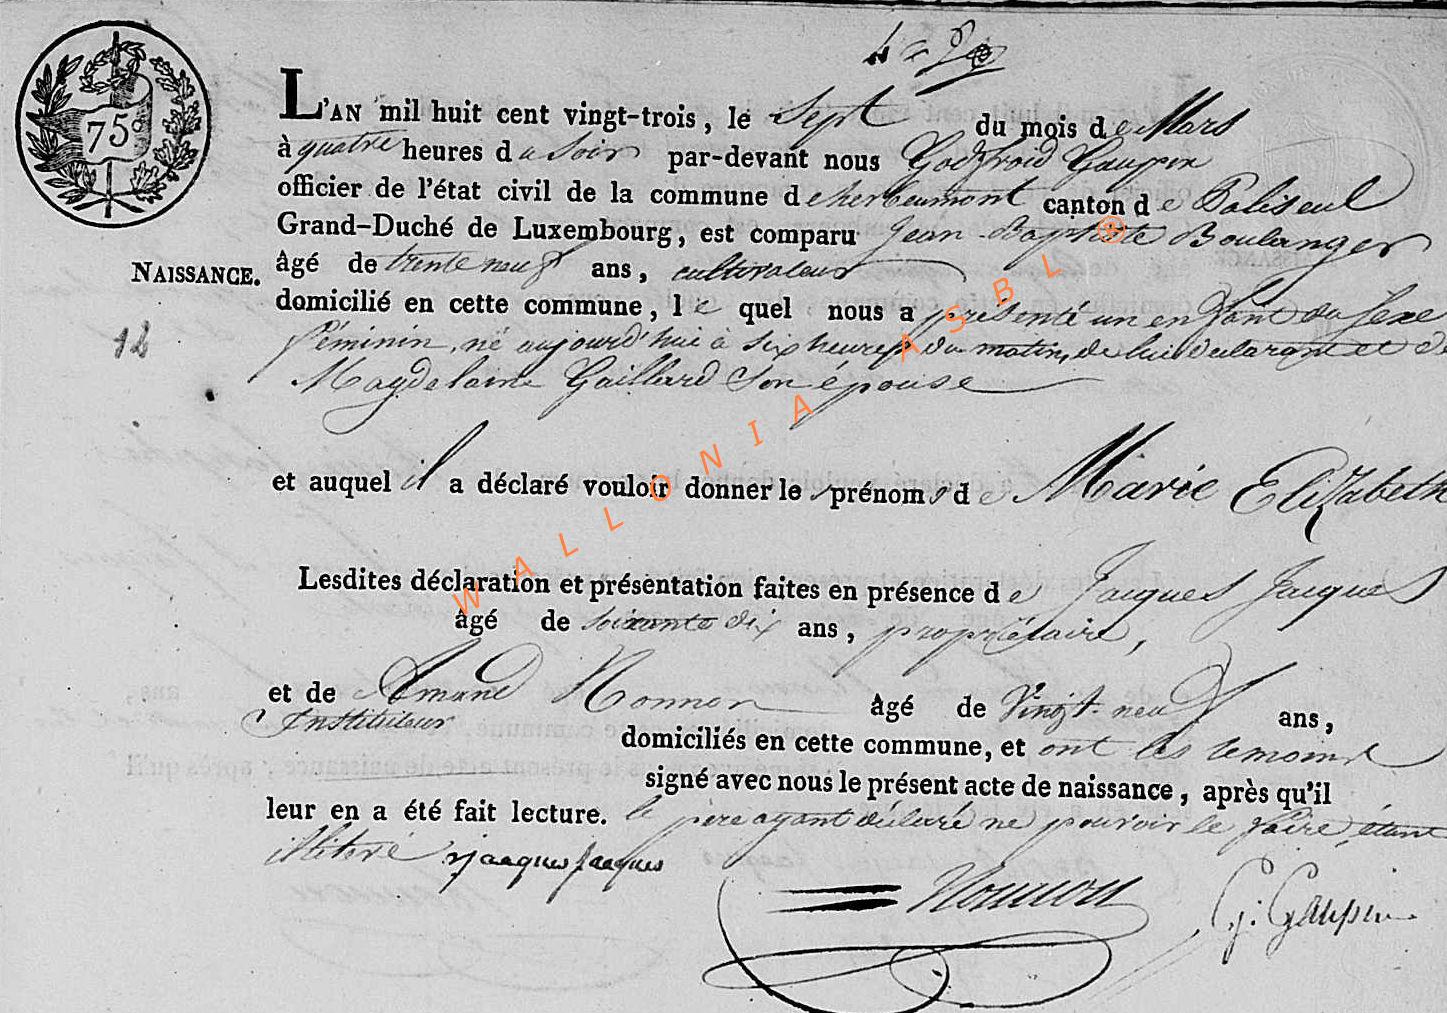 75
L'AN mil huit cent vingt-trois, le Sept du mois de Mars
à quatre heures du Soir par-devant nous Godfroid Gaupin
officier de l'état civil de la commune d'herbeumont canton de Paliseul
Grand-Duché de Luxembourg, est comparu Jean Baptiste Boulanger
âgé de trente neuf ans, cultivateur
NAISSANCE.
domicilié en cette commune, le quel nous a présenté un enfant du Sexe
12
féminin, né aujourd'hui à six heures du matin, de lui déclarant et de
Magdelaine Gaillard Son épouse
et auquel il a déclaré vouloir donner les prénoms de Marie Elizabeth
Lesdites déclaration et présentation faites en présence de Jacques Jacques
âgé de soixante dix ans, propriétaire,
et de Amand Nonnon âgé de Vingt neuf ans,
Instituteur
domiciliés en cette commune, et ont les temoins
signé avec nous le présent acte de naissance, après qu'il
leur en a été fait lecture. le père ayant déclaré ne pouvoir le faire, étant
illiteré jaaques jaaques
Nonnon G: Gaupin
WALLONIA ASBL ®